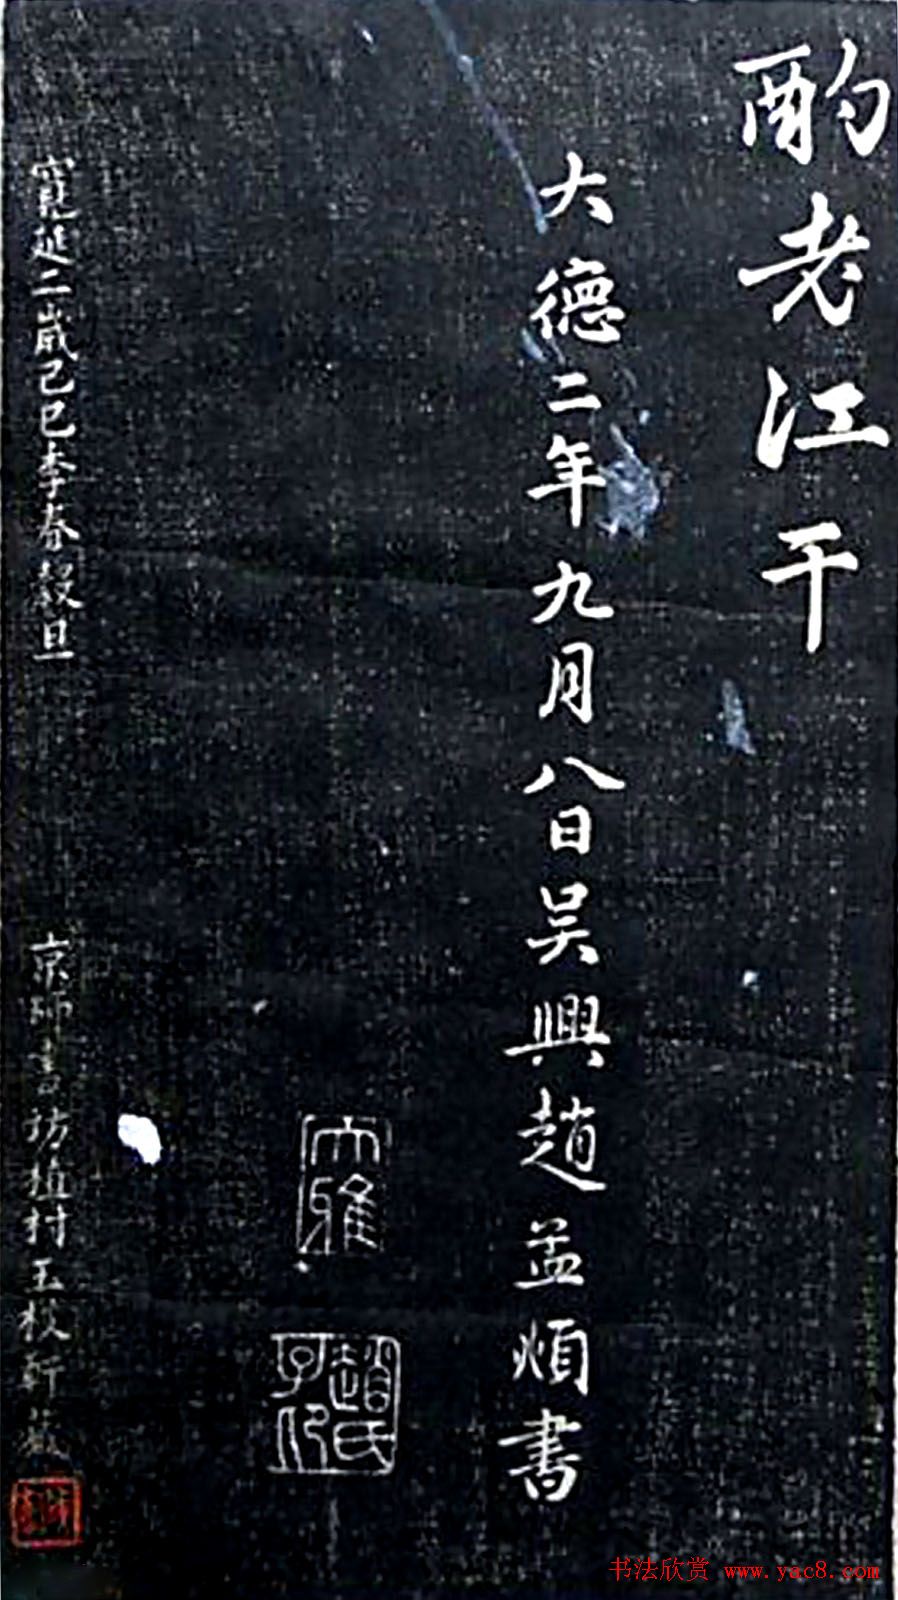 酌老江干
大德二年九月八日吴興趙孟頫書
大雅
趙氏子印
寛延二歳己巳季春穀旦
京師書坊植村玉枝軒蔵
书法欣赏 www.yac8.com